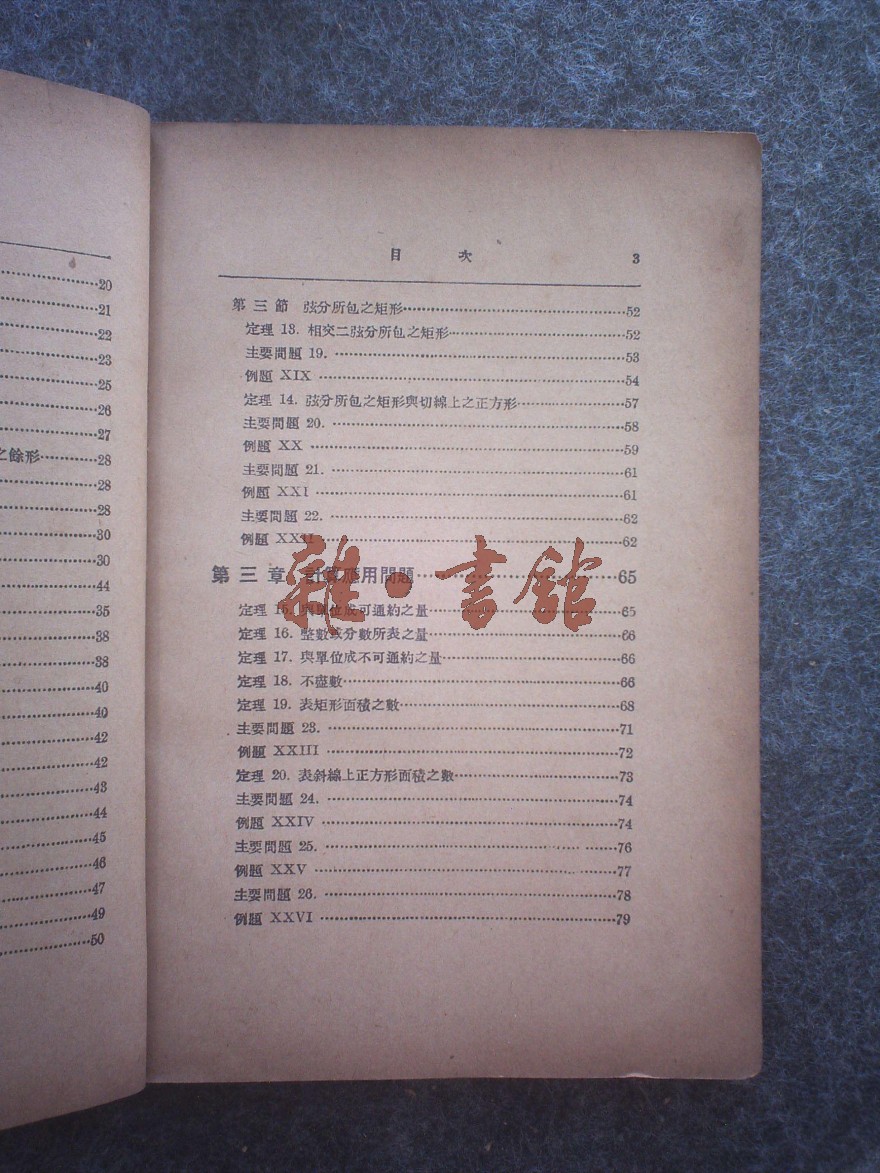 20
21
22
23
25
26
27
之餘形………28
28
28
30
30
44
35
38
38
40
40
42
42
43
44
45
46
47
49
50
目 次 3
第三節 弦分所包之矩形………52
定理 13. 相交二弦分所包之矩形………52
主要問題 19. ………53
例題 XIX ………54
定理 14. 弦分所包之矩形與切線上之正方形………57
主要問題 20. ………58
例題 XX ………59
主要問題 21. ………61
例題 XXI ………61
主要問題 22. ………62
例題 XXII ………62
第三章 計算應用問題………65
定理 15. 與單位成可通約之量………65
定理 16. 整數或分數所表之量………66
定理 17. 與單位成不可通約之量………66
定理 18. 不盡數………66
定理 19. 表矩形面積之數………68
主要問題 23. ………71
例題 XXIII ………72
定理 20. 表斜線上正方形面積之數………73
主要問題 24. ………74
例題 XXIV ………74
主要問題 25. ………76
例題 XXV ………77
主要問題 26. ………78
例題 XXVI ………79
雜·書館